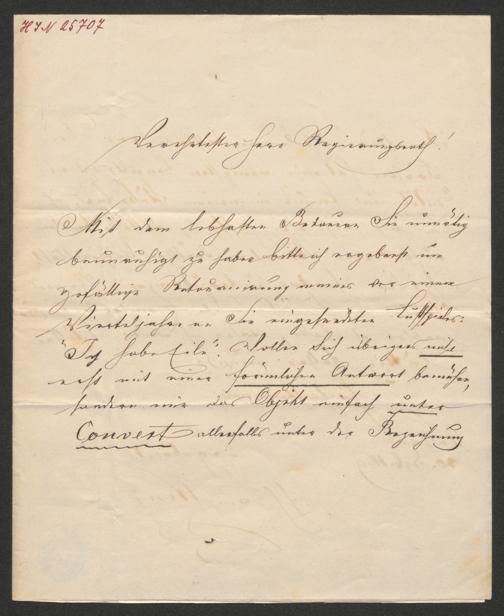 HIN 25707
Verehrtester Herr Regierungsrath!
Mit dem lebhaften Bedauern Sie unnötig
beunruhigt zu haben bitte ich ergebenst um
gefällige Retournierung meines vor einem
Vierteljahre an Sie eingesendeten Lustspieles:
"Ich habe Eile". Wollen Sich übrigens nicht
erst mit einer förmlichen Antwort bemühen,
sondern mir das Objekt einfach unter
Convert allenfalls unter der Bezeichnung